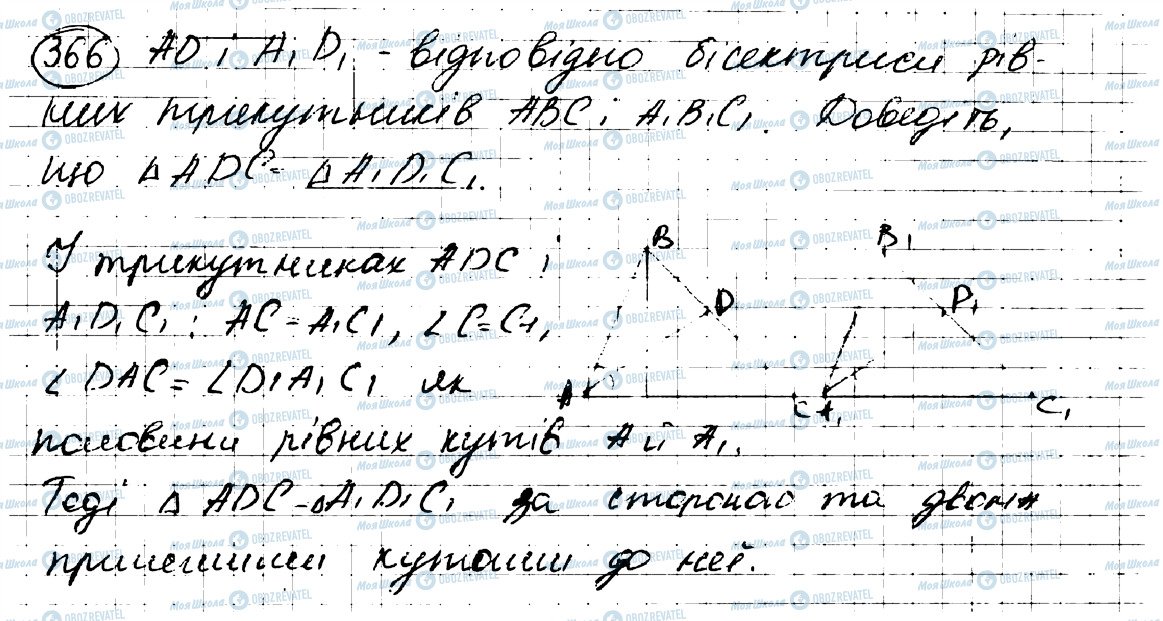 366 AD і A₁D₁ - відповідно бісектриси рів-
них трикутників ABC і A₁B₁C₁. Доведіть,
що △ADC = △A₁D₁C₁.
У трикутниках ADC і
A₁D₁C₁: AC = A₁C₁, ∠C = C₁,
∠DAC = ∠D₁A₁C₁ як
половини рівних кутів A й A₁.
Тоді △ADC = △A₁D₁C₁ за стороною та двома
прилеглими кутами до неї.
B B₁
D D₁
A C A₁ C₁
Моя Школа OBOZREVATEL